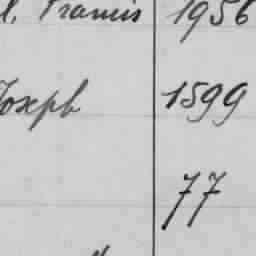 l, Francis 1956
Joseph 1599
77